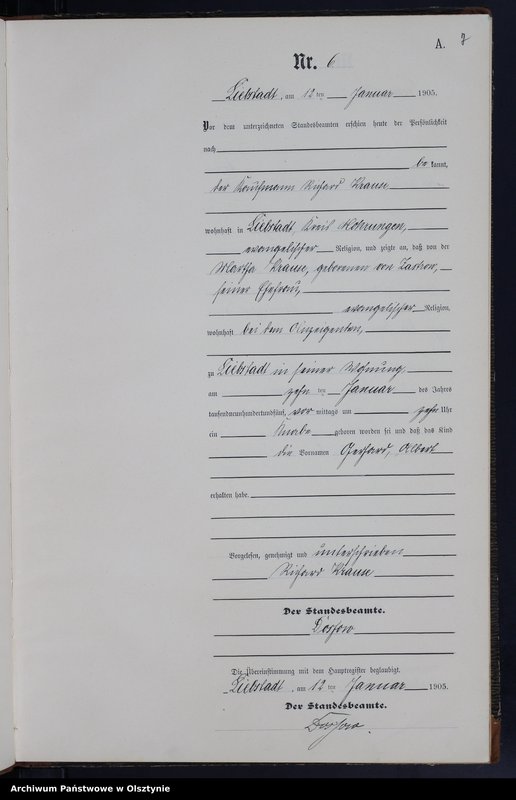 A. 7
Nr. 6
Liebstadt, am 12 ten Januar 1905.
Vor dem unterzeichneten Standesbeamten erschien heute der Persönlichkeit
nach
be kannt,
der Kaufmann Richard Krause
wohnhaft in Liebstadt, Kreis Mohrungen,
evangelischer Religion, und zeigte an, daß von der
Martha Krause, geborenen von
seiner Ehefrau,
evangelischer Religion,
wohnhaft bei dem Anzeigenden,
zu Liebstadt in seiner Wohnung,
am zehn ten Januar des Jahres
tausendneunhundertundfünf, vor mittags um zehn Uhr
ein Knabe geboren worden sei und daß das Kind
die Vornamen Gerhard, Albert
erhalten habe.
Vorgelesen, genehmigt und unterschrieben
Richard Krause
Der Standesbeamte.
Die Übereinstimmung mit dem Hauptregister beglaubigt.
Liebstadt, am 12 ten Januar 1905.
Der Standesbeamte.
Archiwum Państwowe w Olsztynie